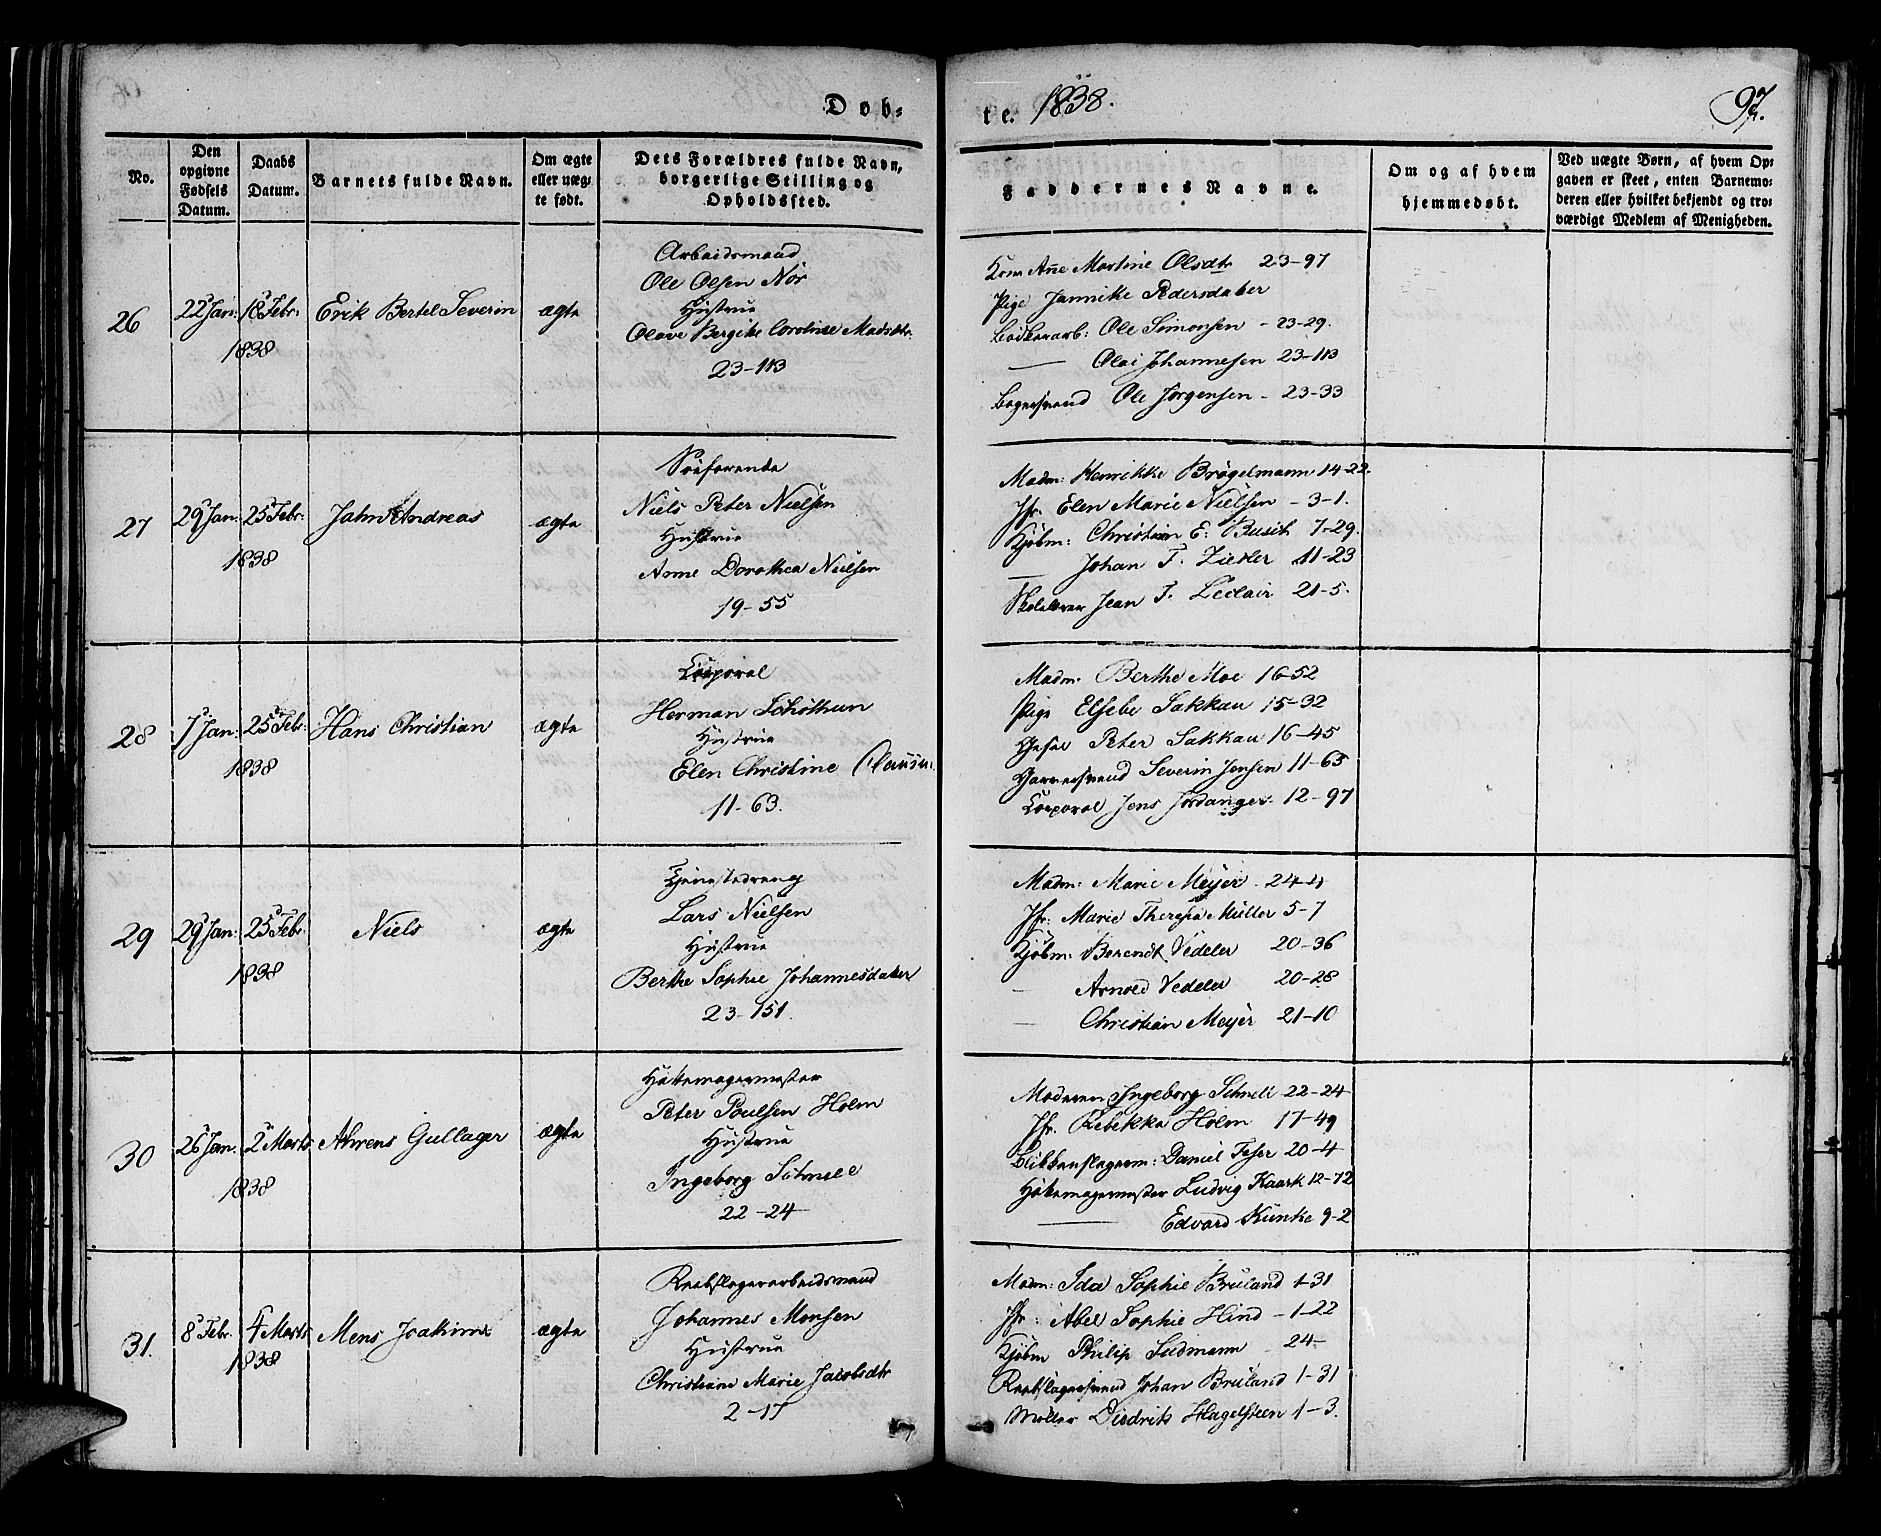 Døb-
te. 1838.
97.
No.
Den opgivne Fødsels Datum.
Daabs Datum.
Barnets fulde Navn.
Om ægte eller uæg- te født.
Dets Forældres fulde Navn, borgerlige Stilling og Opholdssted.
Faddernes Navne.
Om og af hvem hjemmedøbt.
Ved uægte Børn, af hvem Op- gaven er skeet, enten Barnemo- deren eller hvilket bekjendt og tro- værdigt Medlem af Menigheden.
26
22 Jan: 18 Febr:
1838
Erik Bertel Severin
ægte
Arbeidsmand
Ole Olsen Nor
Hustrue
Olave Bergite Caroline Madsdtr.
23-113
Kone Ane Martine Olsdtr 23-97
Pige Jannike Pedersdatter
Bødkerarb: Ole Simonsen - 23-29.
— Olai Johannesen 23-113
Bagersvend Ole Jørgensen - 23-33
27
29 Jan: 25 Febr:
1838
Jahn Andreas
ægte
Søefarende
Niels Peter Nielsen
Hustrue
Anne Dorothea Nielsen
19-55
Madm: Henrikke Brögelmann 14-22
Jfr. Elen Marie Nielsen - 3-1.
Kjøbm: Christian E. Busch 7-29.
— Johan F. Zickler 11-23
Jean F. Leclair 21-5.
28
7 Jan: 25 Feb:
1838
Hans Christian
ægte
Corporal
Herman Schötthun
Hustrue
Elen Christine Clausen
11-63.
Madm: Berthe Moe 16-52
Pige Elsebe Sakkau 15-32
Peter Sakkau 16-45
Garversvend Severin Jensen 11-63
Corporal Jens Jordanger. 12-97
29
29 Jan: 25 Feb:
1838
Niels
ægte
Tjenestedreng
Lars Nielsen
Hustrue
Berthe Sophie Johannesdatter
23-151.
Madm: Marie Meyer. 24-4
Jfr: Marie Theresia Müller 5-7
Kjøbm: Berendt Vedeler 20-36
— Arnold Vedeler 20-28
— Christian Meyer 21-10
30
26 Jan. 2 Marts
1838
Ahrens Gullager
ægte
Hattemagermester
Peter Poulsen Holm
Hustrue
Ingeborg Schnell
22-24
Moderen Ingeborg Schnell 22-24
Jfr. Rebekka Holm 17-49
Blikkenslagerm: Daniel Feser 20-4
Hattemagermester Ludvig Kaark 12-72
— Edvard Künke 9-2
31.
8 Febr. 4 Marts
1838
Mens Joakim
ægte
Reebslagerarbeidsmand
Johannes Monsen
Hustrue
Christiane Marie Jacobsdtr
2-17
Madm: Ida Sophie Brüland 1-31
Jfr: Abel Sophie Hind - 1-22
Kjøbm Philip Sudmann 24-
Reebslagersvend Johan Brüland 1-31
Møller Diedrik Hagelsteen 1-3.